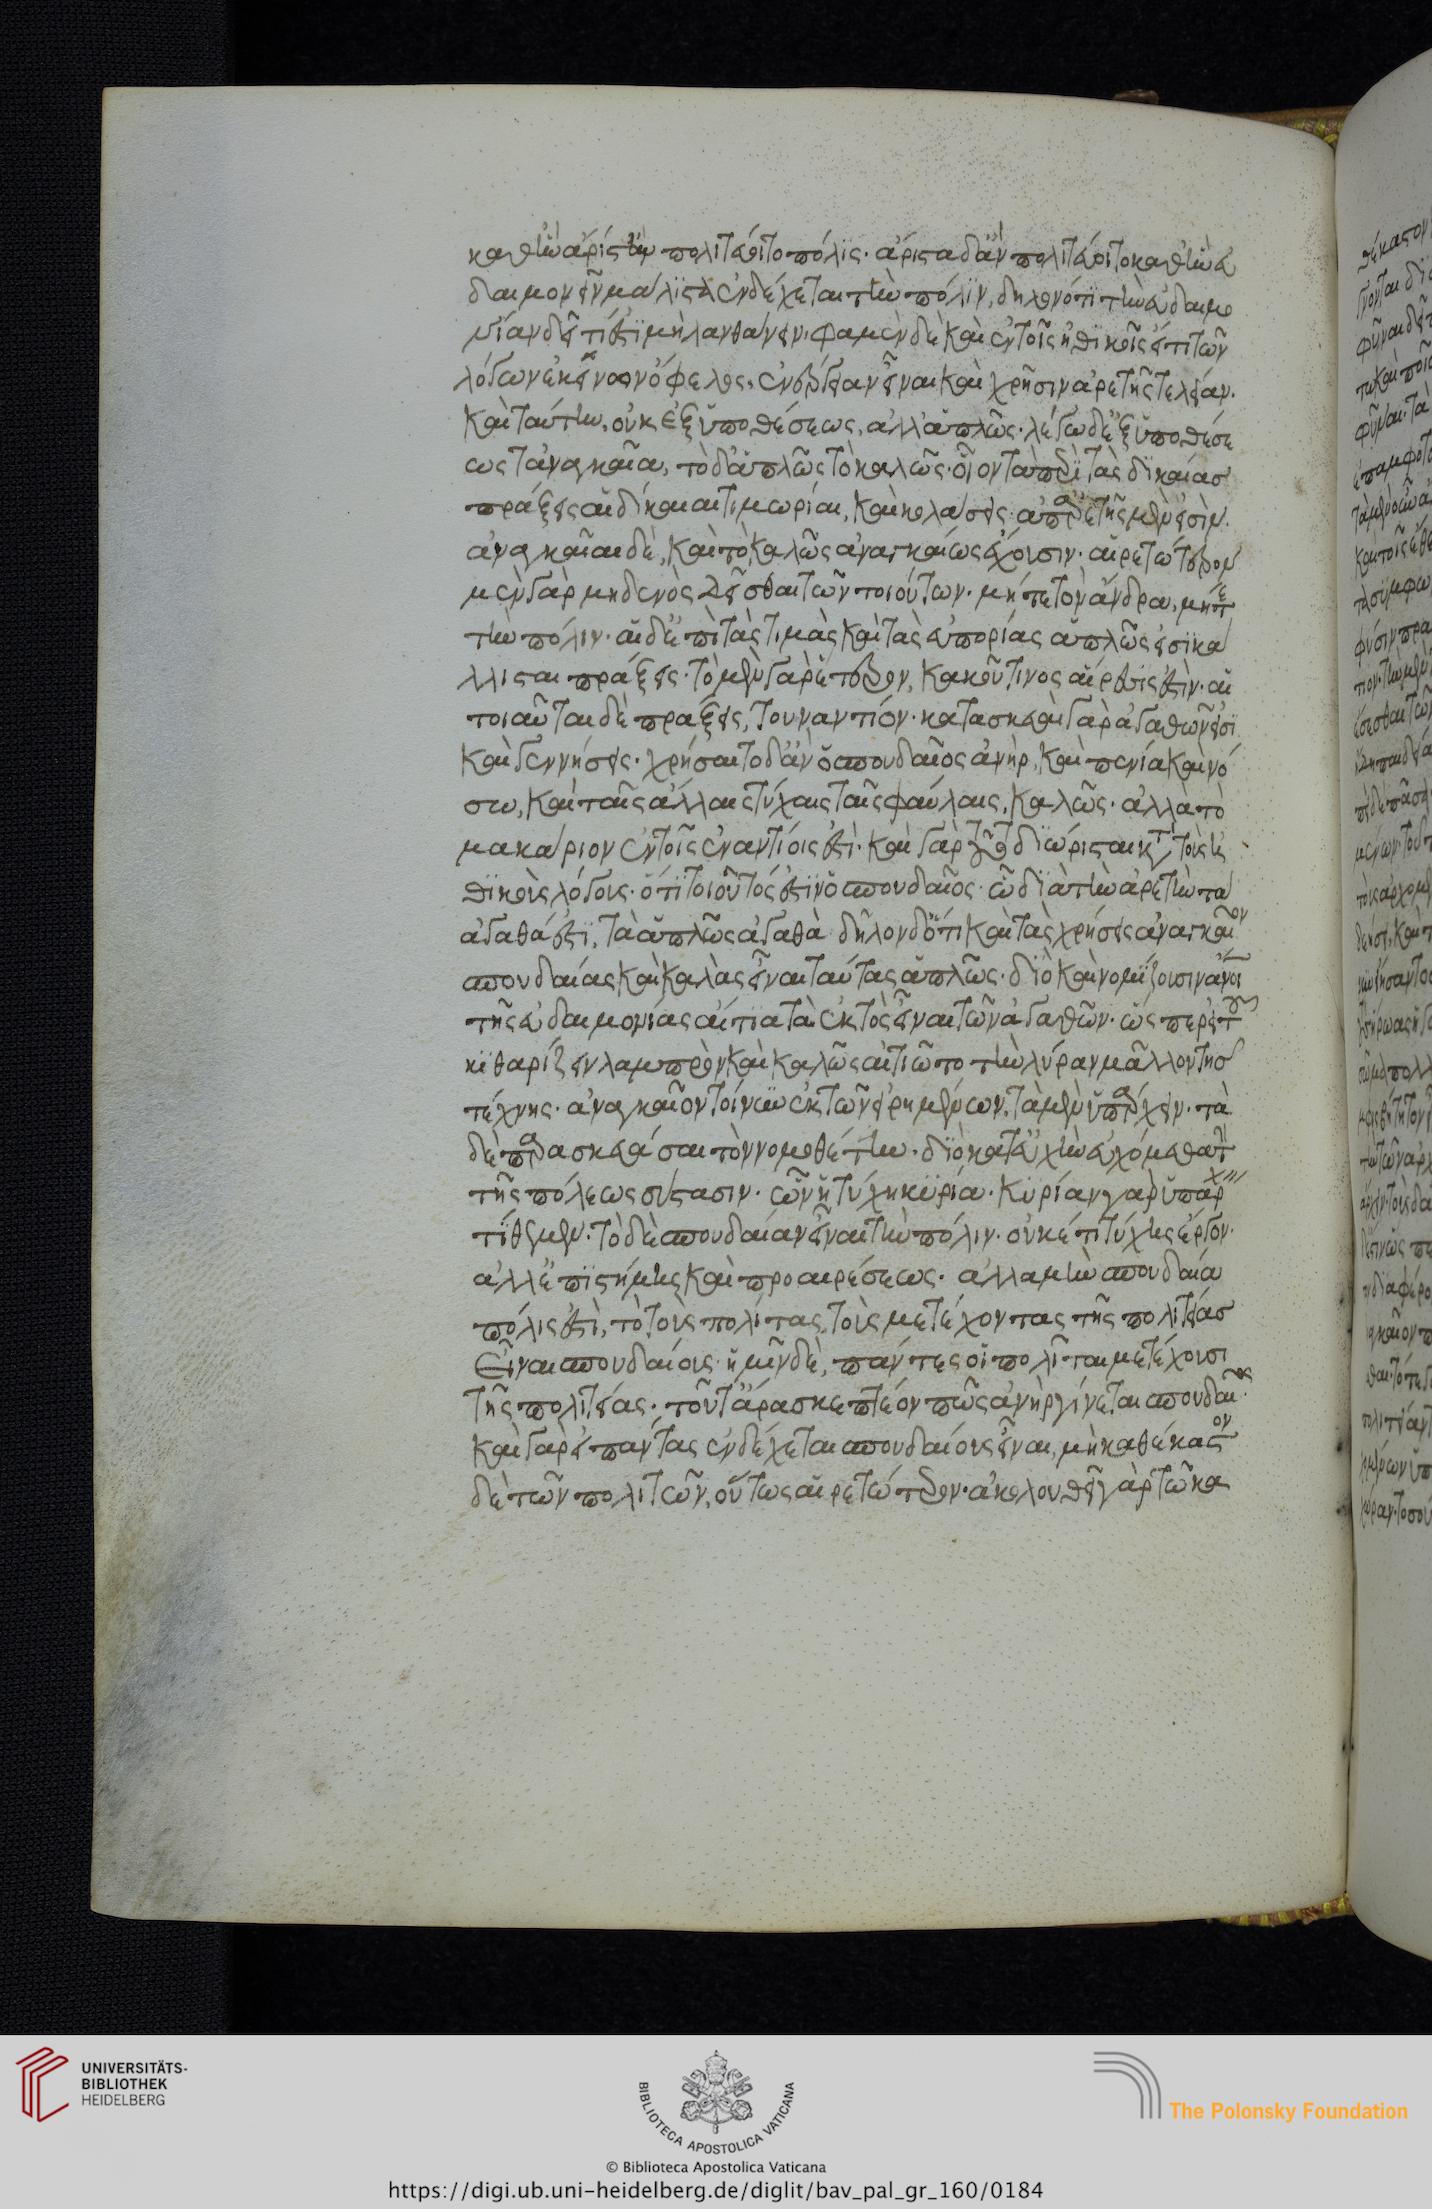 καθ' ἣν ἄριστ' ἂν πολιτεύοιτο πόλις· ἄριστα δ' ἂν πολιτεύοιτο καθ' ἣν εὐ
δαιμονεῖν μάλιστα ἐνδέχεται τὴν πόλιν, δῆλον ὅτι τὴν εὐδαιμο
νίαν δεῖ τί ἐστι μὴ λανθάνειν. φαμὲν δὲ καὶ ἐν τοῖς ἠθικοῖς εἴ τι τῶν
λόγων ἐκείνων ὄφελος, ἐνέργειαν εἶναι καὶ χρῆσιν ἀρετῆς τελείαν.
καὶ ταύτην, οὐκ ἐξ ὑποθέσεως, ἀλλ' ἁπλῶς· λέγω δ' ἐξ ὑποθέσε
ως τἀναγκαῖα, τὸ δ' ἁπλῶς τὸ καλῶς· οἷον τὰ περὶ τὰς δικαίας
πράξεις αἱ δίκαιαι τιμωρίαι, καὶ κολάσεις ἀπ' ἀρετῆς μέν εἰσιν.
ἀναγκαῖαι δὲ, καὶ τὸ καλῶς ἀναγκαίως ἔχουσιν· αἱρετώτερον
μὲν γὰρ μηδενὸς δεῖσθαι τῶν τοιούτων· μήτε τὸν ἄνδρα, μήτε
τὴν πόλιν· αἱ δ' ἐπὶ τὰς τιμὰς καὶ τὰς εὐπορίας ἁπλῶς εἰσι κά
λλισται πράξεις· τὸ μὲν γὰρ ἕτερον, κακοῦ τινος αἵρεσίς ἐστιν· αἱ
τοιαῦται δὲ πράξεις, τουναντίον· κατασκευαὶ γὰρ ἀγαθῶν εἰσὶ
καὶ γεννήσεις· χρήσαιτο δ' ἂν ὁ σπουδαῖος ἀνὴρ, καὶ πενία καὶ νό
σω, καὶ ταῖς ἄλλαις τύχαις ταῖς φαύλαις, καλῶς· ἀλλὰ τὸ
μακάριον ἐν τοῖς ἐναντίοις ἐστὶ· καὶ γὰρ τοῦτο διώρισται κατὰ τοὺς ἠ
θικοὺς λόγους· ὅτι τοιοῦτός ἐστιν ὁ σπουδαῖος· ᾧ διὰ τὴν ἀρετὴν τὰ
ἀγαθά ἐστι, τὰ ἁπλῶς ἀγαθὰ δῆλον δ' ὅτι καὶ τὰς χρήσεις ἀναγκαῖον
σπουδαίας καὶ καλὰς εἶναι ταύτας ἁπλῶς· διὸ καὶ νομίζουσιν ἄνθρωποι
τῆς εὐδαιμονίας αἴτια τὰ ἐκτὸς εἶναι τῶν ἀγαθῶν· ὥσπερ εἰ τοῦ
κιθαρίζειν λαμπρὸν καὶ καλῶς αἰτιῶτο τὴν λύραν μᾶλλον τῆς
τέχνης· ἀναγκαῖον τοίνυν ἐκ τῶν εἰρημένων, τὰ μὲν ὑπάρχειν· τὰ
δὲ παρασκευάσαι τὸν νομοθέτην· διὸ κατ' εὐχὴν εὐχόμεθα τὴν
τῆς πόλεως σύστασιν· ὧν ἡ τύχη κυρία· κυρίαν γὰρ ὑπάρχειν
τίθεμεν· τὸ δὲ σπουδαίαν εἶναι τὴν πόλιν· οὐκέτι τύχης ἔργον·
ἀλλ' ἐπιστήμης καὶ προαιρέσεως· ἀλλὰ μὴν σπουδαία
πόλις ἐστὶ, τὸ τοὺς πολίτας, τοὺς μετέχοντας τῆς πολιτείας
εἶναι σπουδαίους· ἡμῖν δὲ, πάντες οἱ πολῖται μετέχουσι
τῆς πολιτείας· τοῦτ' ἄρα σκεπτέον πῶς ἀνὴρ γίνεται σπουδαῖος·
καὶ γὰρ εἰ πάντας ἐνδέχεται σπουδαίους εἶναι, μὴ καθ' ἕκαστον
δὲ τῶν πολιτῶν, οὕτως αἱρετώτερον· ἀκολουθεῖ γὰρ τῶ κα
UNIVERSITÄTS-
BIBLIOTHEK
HEIDELBERG
BIBLIOTECA APOSTOLICA VATICANA
The Polonsky Foundation
© Biblioteca Apostolica Vaticana
https://digi.ub.uni-heidelberg.de/diglit/bav_pal_gr_160/0184